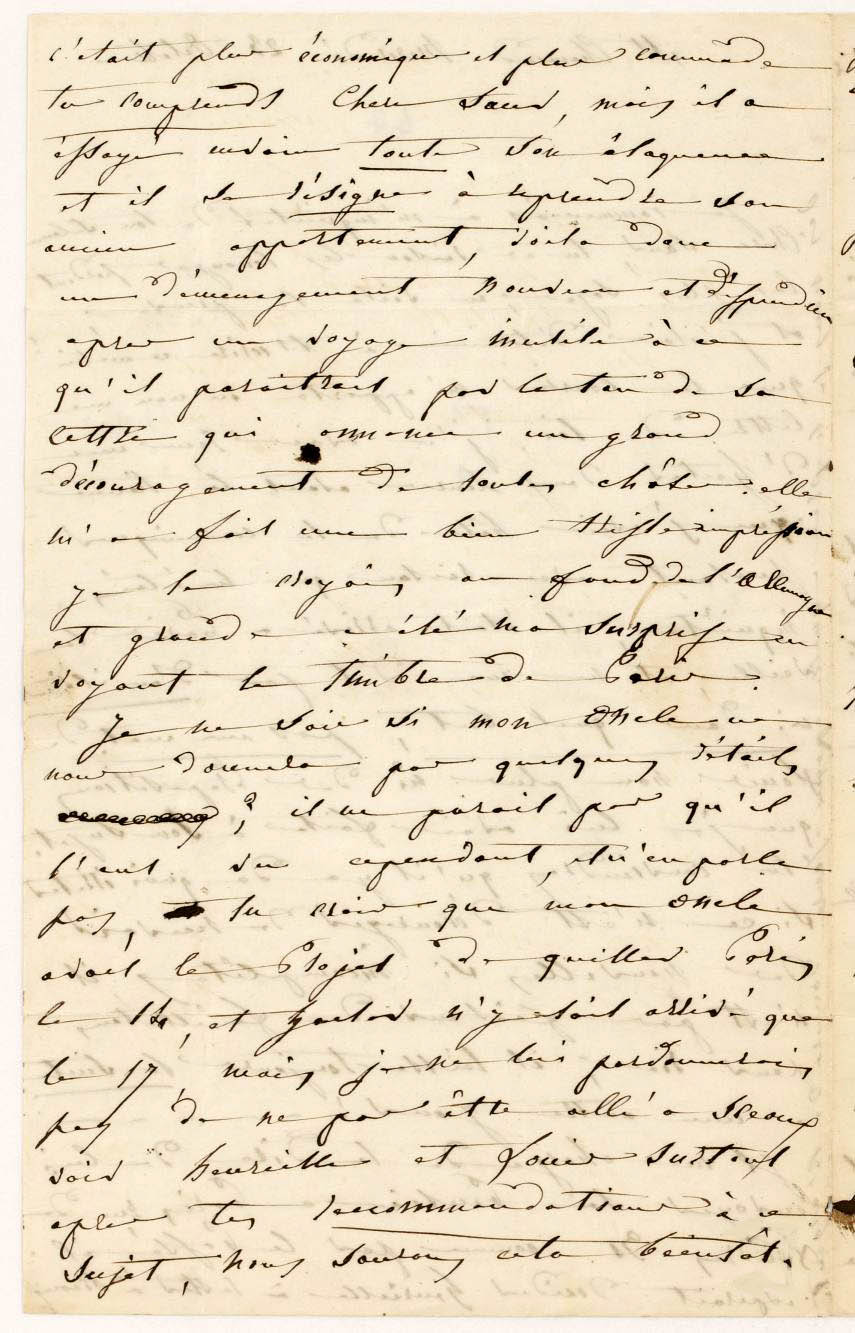 c'était plus économique et plus commode
tu comprends Chere Sœur, mais il a
essayé envain toute son éloquence
et il se résigne à reprendre son
ancien appartement, voila donc
un déménagement nouveau et dispendieux
apres un voyage inutile à ce
qu'il paraitrait par le ton de sa
lettre qui annonce un grand
découragement de toutes chôses. elle
m'a fait une bien triste impression
je le croyais au fond de l'Allemagne
et grande a été ma surprise en
voyant le timbre de Paris.
Je ne sais si mon Oncle ne
nous donnera pas quelques détails
; il ne parait pas qu'il
l'ait vu cependant, et n'en parle
pas, tu crois que mon Oncle
avait le Projet de quitter Paris
le 14, et n'y était arrivé que
le 17, mais je ne lui pardonnerais
pas de ne pas être allé a Sceaux
voir henriette et Louis surtout
apres tes reccommandations à ce
sujet, nous saurons cela bientôt.